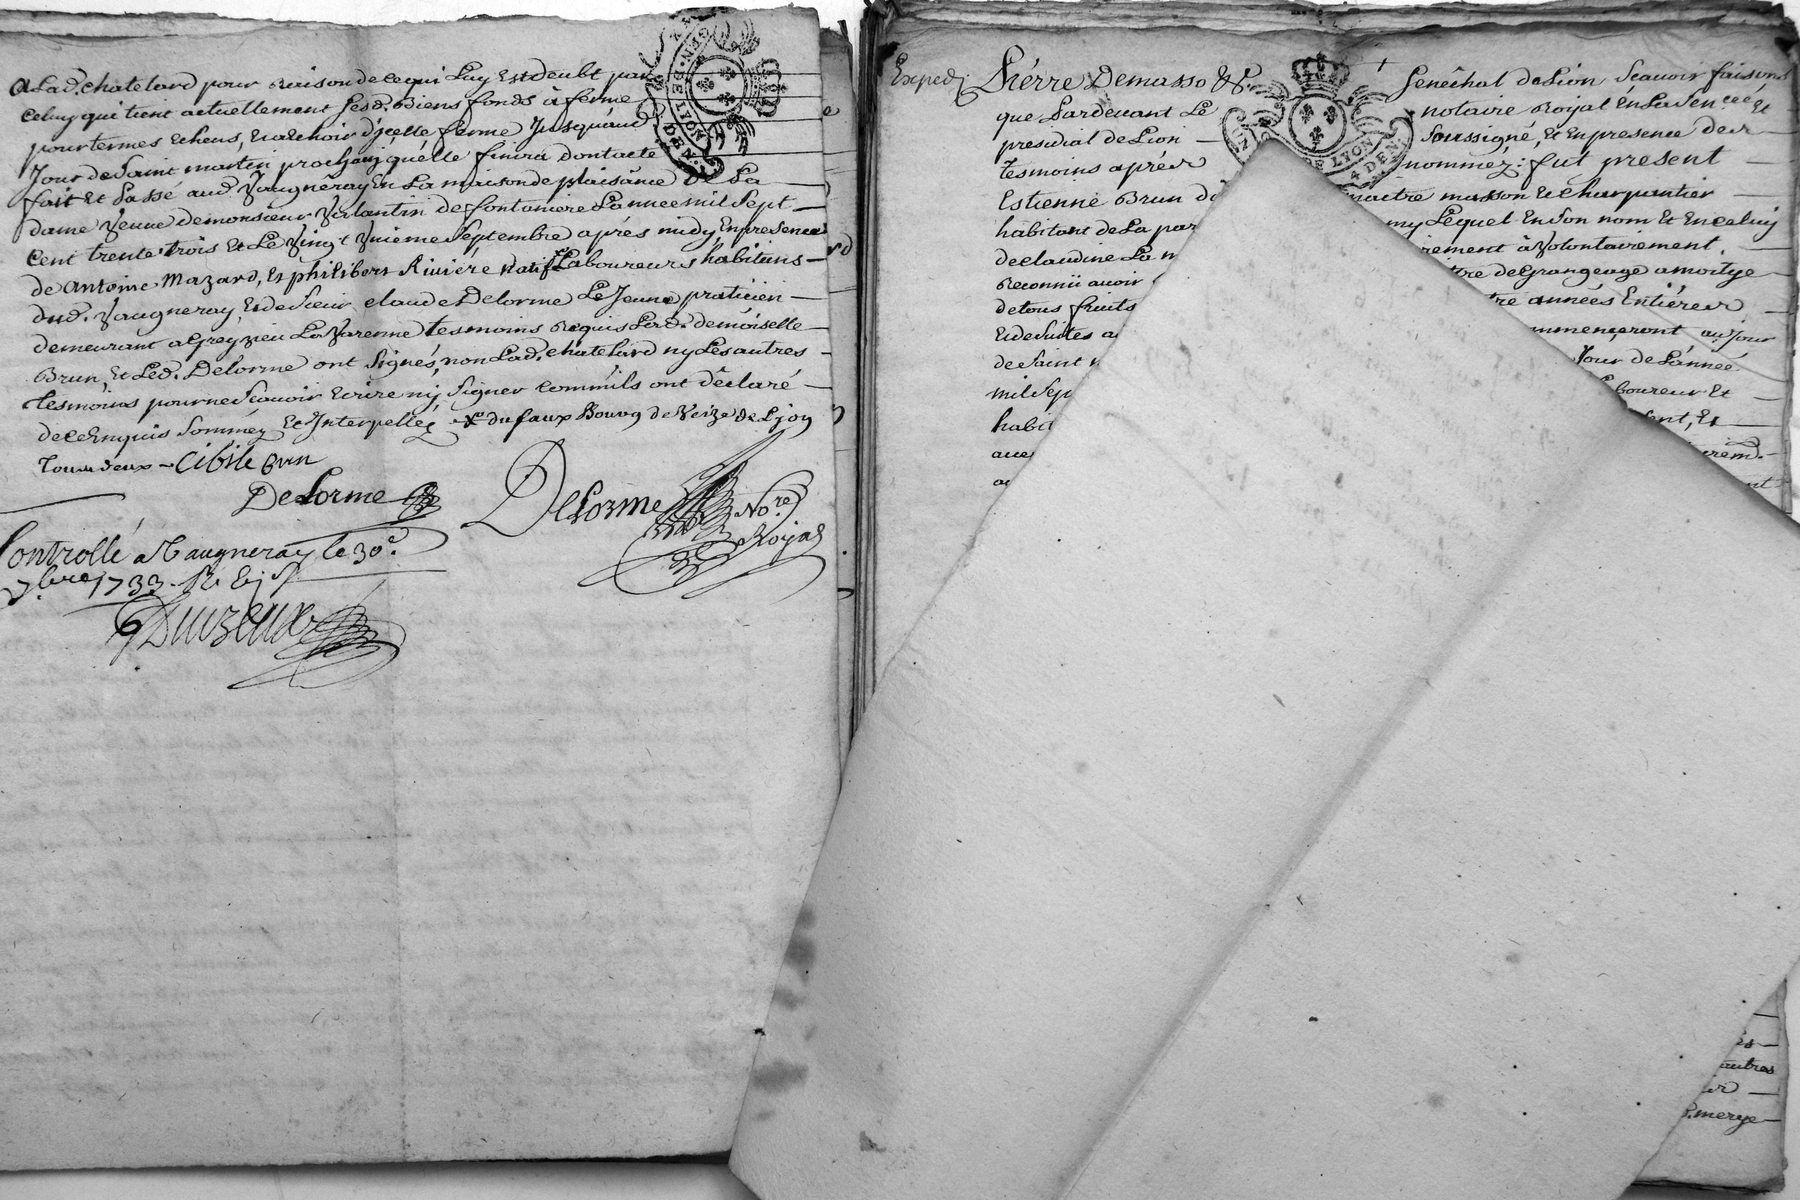 a Lad. chatelard pour Raison de ce qui Luy Est deubt par
celuy qui tient actuellement Lesd. Biens fonds à ferme
pour termes echeus, Et a echoir d'jcelle ferme Jusqu'au
Jour de Saint martin prochain qu'elle finira dont acte
fait Et Passé aud. Vaugneray En La maison de plaisance de La
dame Veuve de monsieur Valantin de fontaniere L'annee mil Sept
Cent trente trois Et Le Vingt Vuieme Septembre aprés midy En presence
de Antoine Mazard, Et philibert Riviere Natif Laboureurs habitans
dud. Vaugneray, Et de Sieur claude Delorme Le Jeune praticien
demeurant a Greyzieu La Varenne tesmoins Requis Lad. demoiselle
Brun, Et Led. Delorme ont Signés, non Lad. chatelard ny Les autres
tesmoins pour ne Scauoir Ecrire ny Signer comm'ils ont déclaré
de ce Enquis Sommés Et Interpellés x du faux Bourg de Veize de Lyon
Cibile Brun
DeLorme
DeLorme No.re
Royal
Controllé a Vaugneray le 30e.
7bre 1733.
Duizeux
GEN. DE LYON
4 DEN.
Expedi
Pierre Demasso &c. Senéchal de Lion Scauoir faisons
que Pardeuant Le notaire Royal En La Sen.cée Et
presidial de Lion Soussigné, Et En presence des
tesmoins aprés nommez: fut present
Estienne Brun maitre masson Et charpantier
habitant de La par my Lequel En Son nom Et En celuy
de claudine La rement à Volontairement
Reconnü auoir tre de Grangeage a moitye
de tous fruits tre années Entiéres
Et de Suites a mmenceront au Jour
de Saint Jour de L'année
mil Sep boureur Et
habit ent, Et
LYON
4 DEN
autres